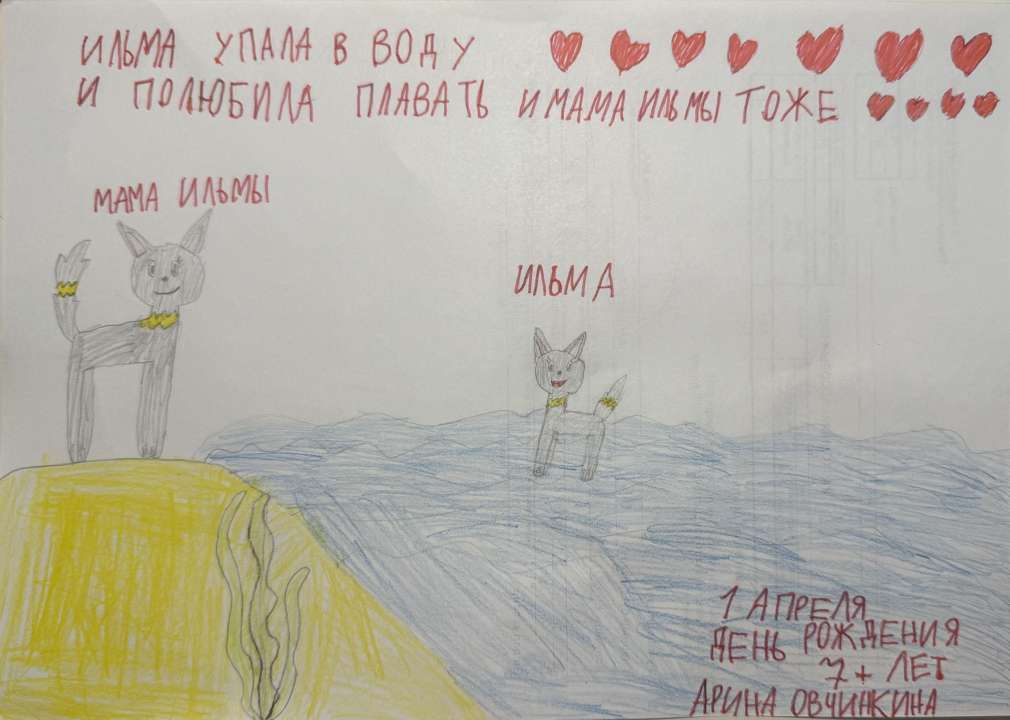 ИЛЬМА УПАЛА В ВОДУ
И ПОЛЮБИЛА ПЛАВАТЬ И МАМА ИЛЬМЫ ТОЖЕ
МАМА ИЛЬМЫ
ИЛЬМА
1 АПРЕЛЯ
ДЕНЬ РОЖДЕНИЯ
7+ ЛЕТ
АРИНА ОВЧИНКИНА